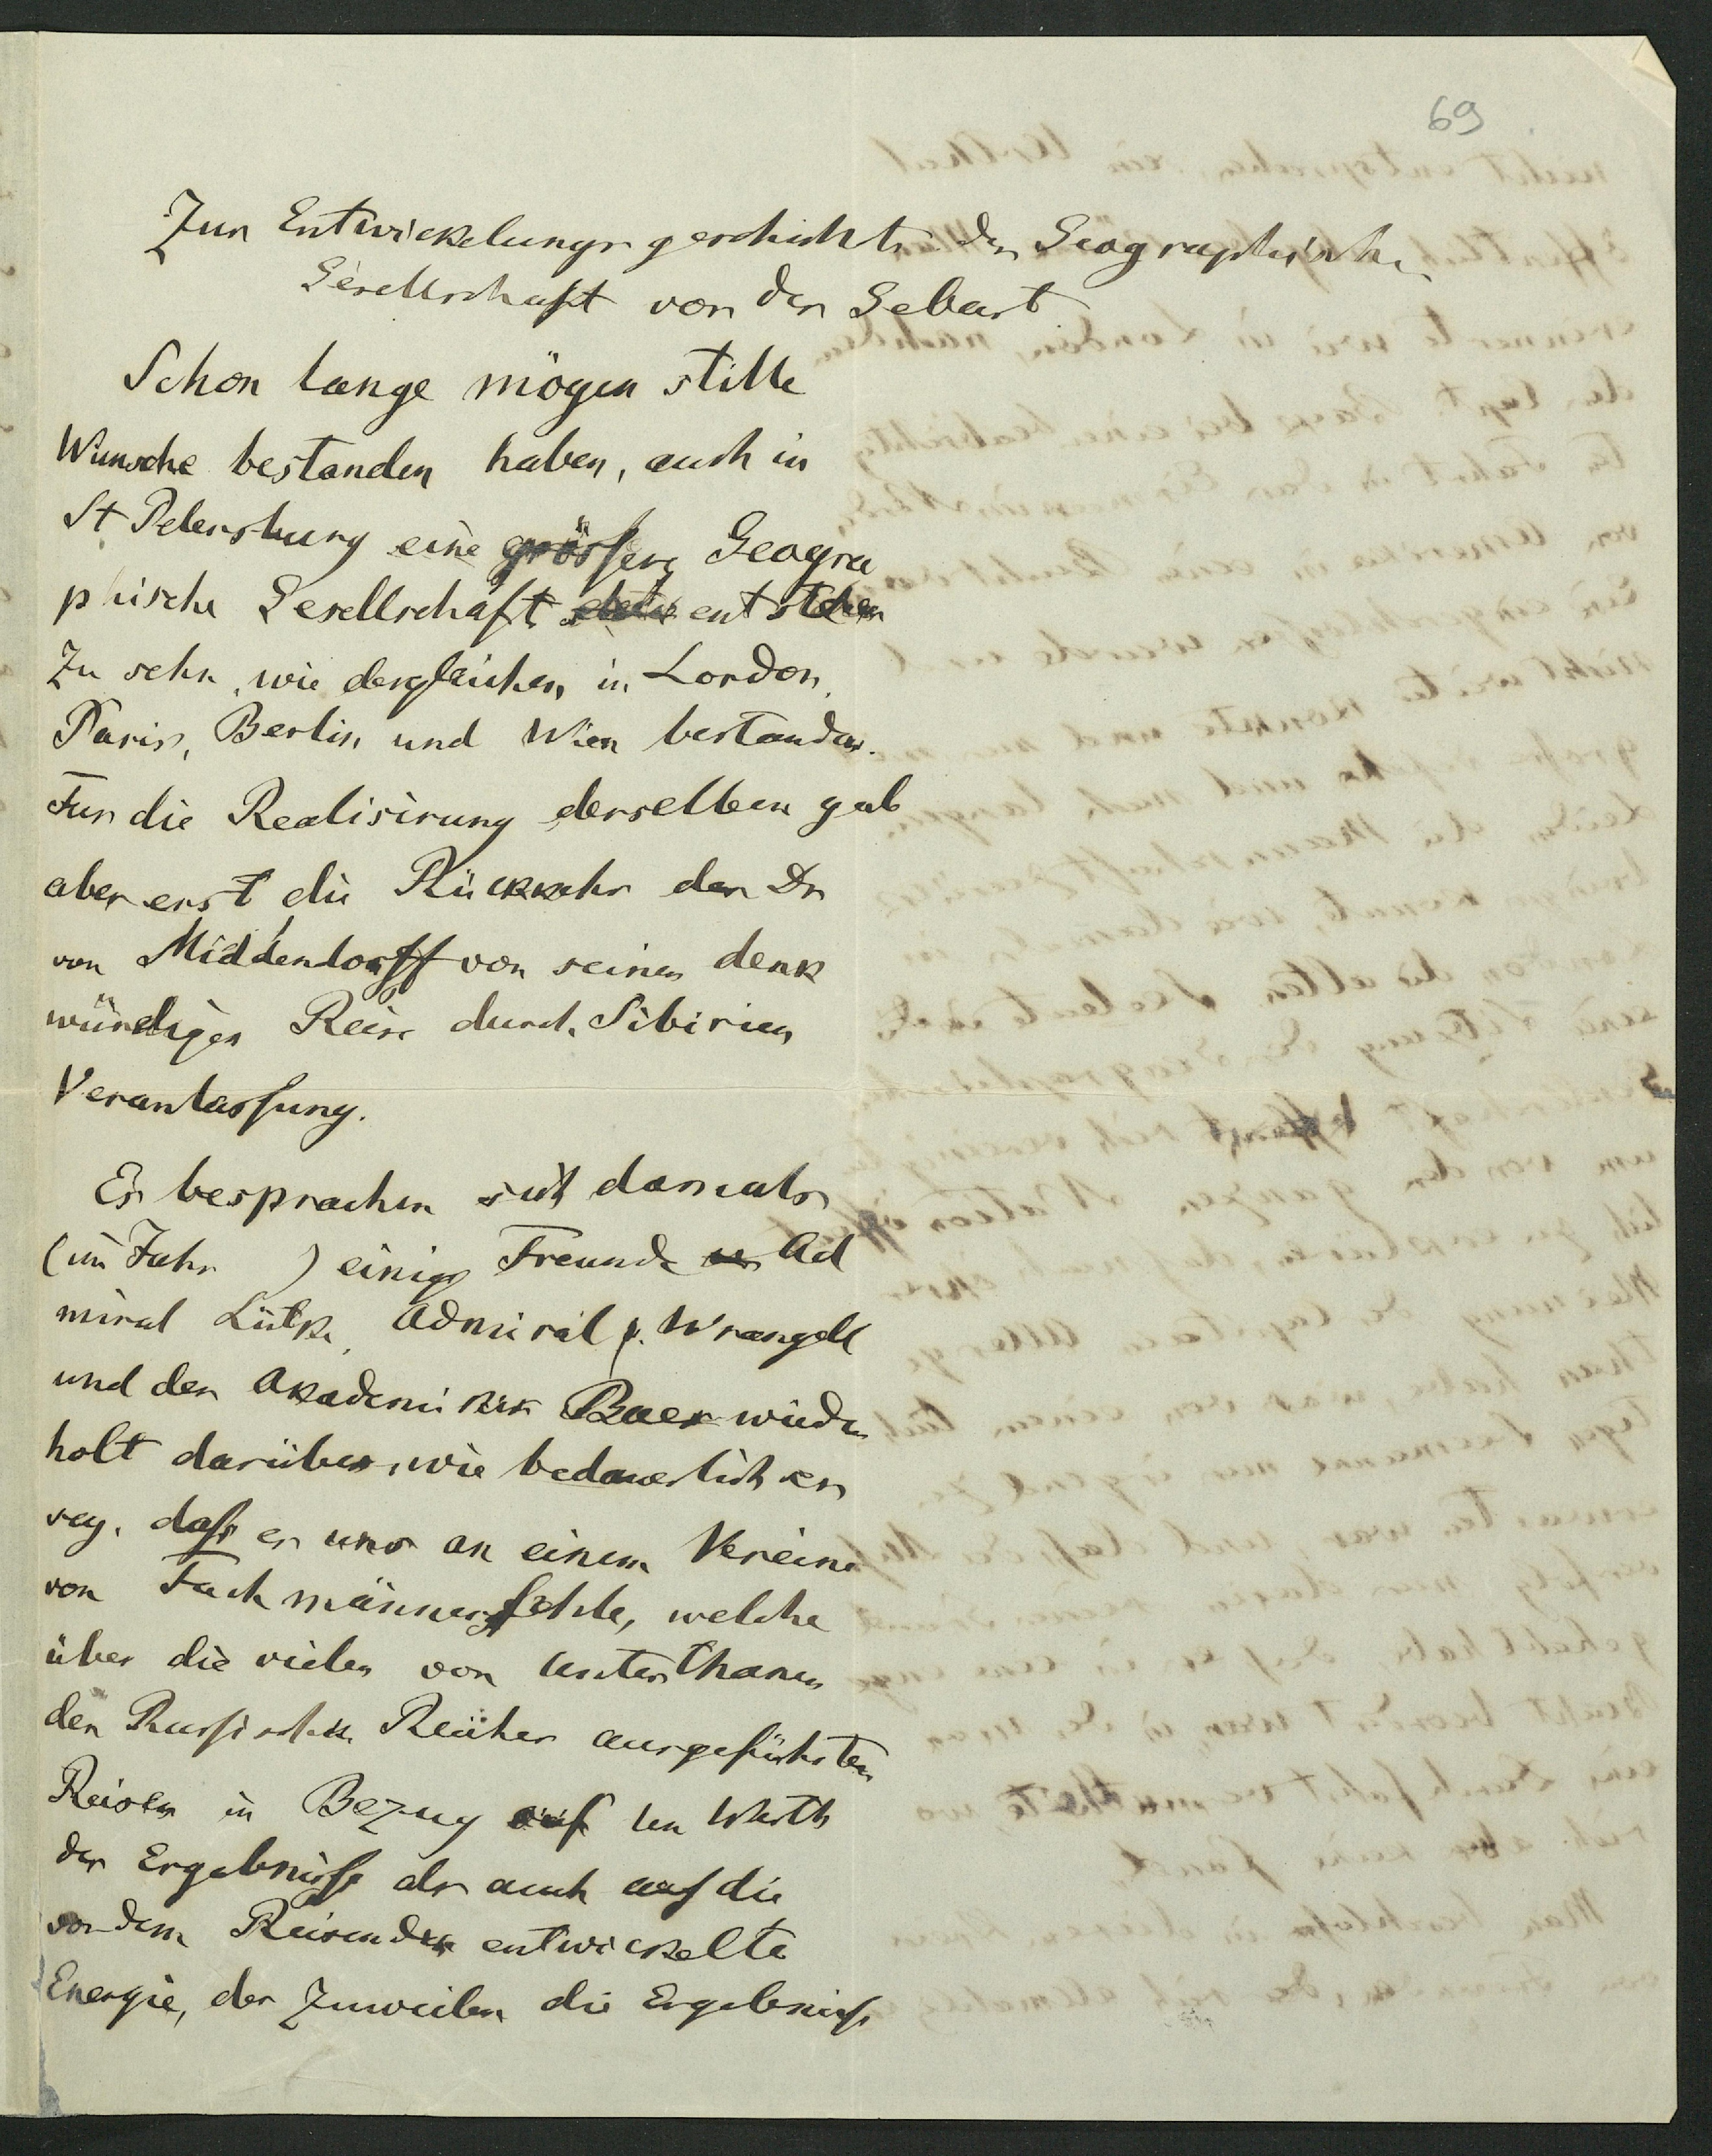 69
Zur Entwickelungsgeschichte der Geographischen
Gesellschaft vor der Geburt
Schon lange mögen stille
Wünsche bestanden haben, auch in
St Petersburg eine grössere Geogra
phische Gesellschaft entstehen
zu sehn, wie dergleichen in London,
Paris, Berlin und Wien bestanden.
Für die Realisirung derselben gab
aber erst die Rückkehr des Dr
von Middendorff von seiner denk
würdigen Reise durch Sibirien
Veranlassung.
Es besprachen sich damals
(im Jahr ) einige Freunde Ad
miral Lütke, Admiral v. Wrangell
und der Akademiker Baer wieder
holt darüber, wie bedauerlich es
sey, dass es uns an einem Vereine
von Fachmännern fehle, welche
über die vielen von Unterthanen
des Russischen Reiches ausgeführten
Reisen in Bezug auf den Werth
der Ergebnisse als auch auf die
von dem Reisenden entwickelte
Energie, der zuweilen die Ergebnisse